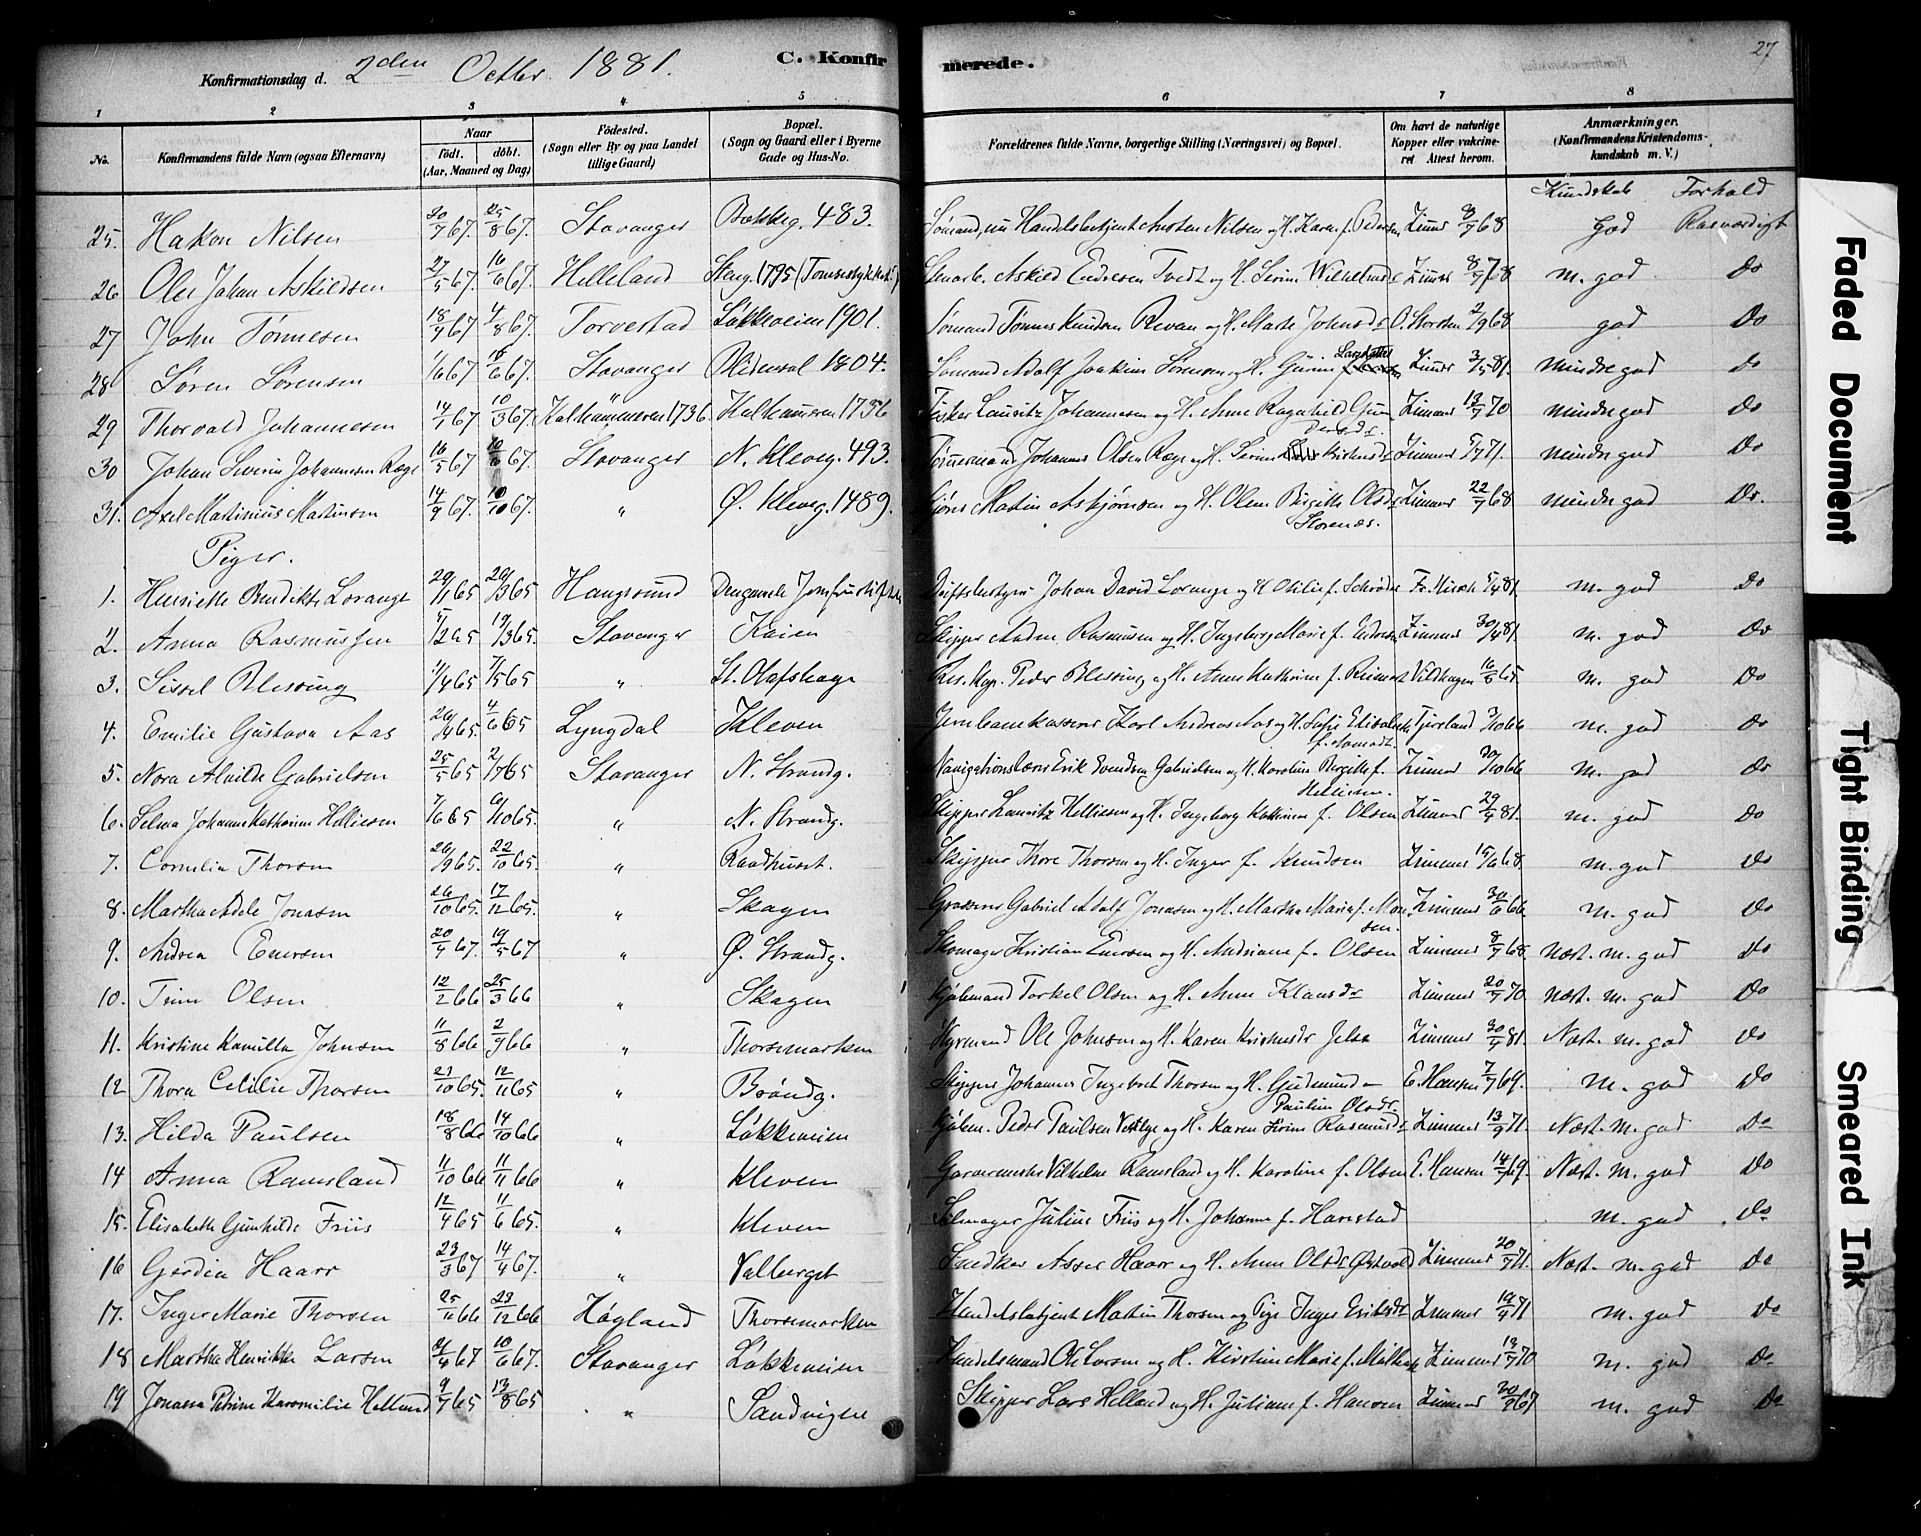 27
Konfirmationsdag d. 2den Octbr. 1881. C. Konfirmerede.
1 2 3 4 5 6 7 8
No. Konfirmandens fulde Navn (ogsaa Efternavn) Naar født. døbt. (Aar, Maaned og Dag) Fødested. (Sogn eller By og paa Landet tillige Gaard) Bopæl. (Sogn og Gaard eller i Byerne Gade og Hus-No. Forældrenes fulde Navne, borgerlige Stilling (Næringsvei) og Bopæl. Om havt de naturlige Kopper eller vakcineret Attest herom. Anmærkninger. (Konfirmandens Kristendomskundskab m. V.)
Kundskab Forhold
25. Hakon Nilsen 20/7 67. 25/8 67. Stavanger Bakkeg. 483. Sømand, nu Handelsbetjent Nilsen og H. Karen f. Pedersen Zimmer 8/7 68 god Rosværdigt
26 Ole Johan Askildsen 27/5 67. 16/6 67. Helleland Steng. 1795 Askild Endresen Tvedt og H. Serine Zimmer m. god Do
27 John Tønnesen 18/4 67 4/8 67. Torvestad Løkkeveien 1901. Sømand Tønnes Knudsen Revan og H. Marte Johnsdr O. Storsten 2/9 68 god Do
28 Søren Sørensen 1/6 67 16/6 67. Stavanger Blidensol 1804. Sømand Adolf Joakim Sørensen og H. Gurine Larsdatter Zimmer 3/5 81. mindre god Do
29 Thorvald Johannesen 14/1 67 10/3 67. Kalhammeren 1736 Kalhammeren 1736 Fisker Lauritz Johannesen og H. Anne Ragnhild Gundersdr. Zimmer 13/7 70 mindre god Do
30 Johan Severin Johannesen Røge 16/5 67 10/6 67. Stavanger N. Kleveg. 493. Tømmermand Johannes Olsen Røge og H. Serine Zimmer 5/7 71. mindre god Do
31. Axel Martinius Martinsen 14/9 67. 10/10 67. " Ø. Kleveg. 1489. Martin Asbjørnsen og H. Oline Birgitte Olsdr Storenæs. Zimmer 22/7 68 mindre god Do.
Piger.
1. Henriette Bendikte Lorange 29/1 65 26/3 65 Haugesund Dengamle Johan David Lorange og H. Otilie f. Schrøder 5/4 81. m. god Do
2. Anna Rasmussen 5/1 265 19/3 65. Stavanger Kaien Skipper Anders Rasmussen og H. Ingeborg Marie f. Endresen Zimmer 30/4 81. m. god Do
3. Sissel Blessing 11/4 65 7/5 65 " St. Olafshage Res. Kap. Peder Blessing og H. Anne Kathrine f. Reimert Vildhagen 16/6 65. m. god Do
4. Emilie Gustava Aas 26/4 65. 4/6 65 Lyngdal Kleven Jernbanekasserer Karl Andreas Aas og H. Sofie Elisabeth Tjersland 3/10 66 m. god Do
5. Nora Alvilde Gabrielsen 25/5 65 2/7 65 Stavanger N. Strandg. Navigationslærer Erik Svendsen Gabrielsen og H. Karoline Birgitte f. Helliesen. Zimmer 30/10 66 m. god Do
6. Selma Johanne Kathrine Helliesen 7/6 65 6/10 65. " N. Strandg. Skipper Lauritz Helliesen og H. Ingeborg Kathrine f. Olsen Zimmer 29/4 81. m. god Do
7. Cornelia Thorsen 26/9 65. 22/10 65. " Raadhuset. Skipper Thore Thorsen og H. Inger f. Knudsen Zimmer 15/6 68. m. god Do
8. Martha Adele Jonasen 26/10 65. 17/12 65. " Skagen Grosserer Gabriel Adolf Jonasen og H. Martha Marie f. Monsen. Zimmer 30/6 66 m. god Do
9. Andrea Enersen 20/4 67. 19/5 67 " Ø. Strandg. Skomager Kristian Enersen og H. Andriane f. Olsen Zimmer 8/7 68. næst. m. god Do
10. Trine Olsen 12/2 66 25/3 66 " Skagen Kjølmand Torkel Olsen og H. Anne Klausdr Zimmer 20/7 70. næst. m. god Do
11. Kristine Kamilla Johnsen 11/8 66 2/9 66 " Thorsemarken Hyrmand Ole Johnsen og H. Karen Jelsa Zimmer 30/4 81. Næst. m. god Do
12 Thora Cecilie Thorsen 23/10 65. 12/11 65 " Brøndg. Skipper Johannes Ingebret Thorsen og H. Gudmunda Pauline Olsdr. E. Hansen 7/7 69. m. god Do
13. Hilda Paulsen 18/8 66 14/10 66 " Løkkeveien Kjølm. Peder Paulsen og H. Karen Serine Rasmusdr Zimmer 13/9 71. Næst. m. god Do
14 Anna Ramsland 11/10 66 11/11 66 " Kleven Garvermester Vilhelm Ramsland og H. Karoline f. Olsen E. Hansen 14/7 69. Næst. m. god Do
15. Elisabeth Gunhilde Friis 12/4 65 11/6 65. " Kleven Julius Friis og H. Johanne f. Harestad m. god Do
16 Gerdia Haarr 23/3 67 14/4 67. " Valberget Snedker Asser Haarr og H. Anne Olsdr Østvold Zimmer 20/7 71. Næst. m. god Do
17. Inger Marie Thorsen 25/11 66 23/12 66 Høgland Thorsemarken Handelsbetjent Martin Thorsen og Pige Inger Eriksdr Zimmer 19/4 71 m. god Do
18 Martha Henrikke Larsen 21/4 67 10/6 67. Stavanger Løkkeveien Handelsmand Ole Larsen og H. Kirstine Marie f. Zimmer 13/7 70 m. god Do
19 Jonassa Petrine Helland 9/7 65 13/8 65 " Sandvigen Skipper Lars Helland og H. Juliane f. Hansen Zimmer 30/9 67 m. god Do
Faded Document
Tight Binding
Smeared Ink